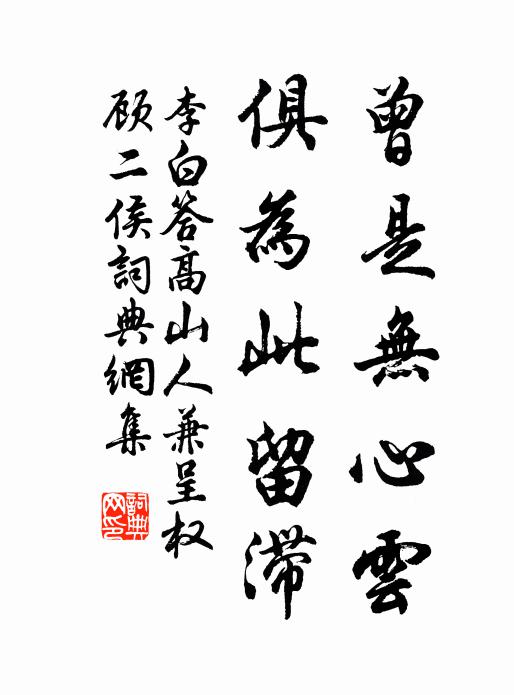 曾是無心雲
俱為此留滯
李白答高山人兼呈权
顾二侯詞典網集
詞典
网印